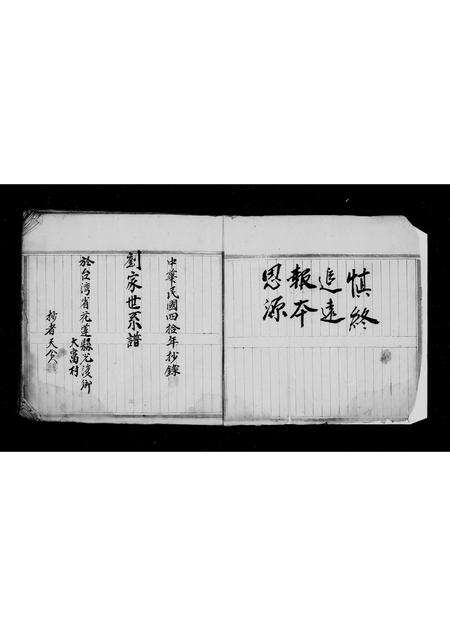 慎終
追遠
報本
思源
中華民國四拾年抄錄
劉家世系譜
於台湾省花蓮縣光復鄉
大富村
抄者天